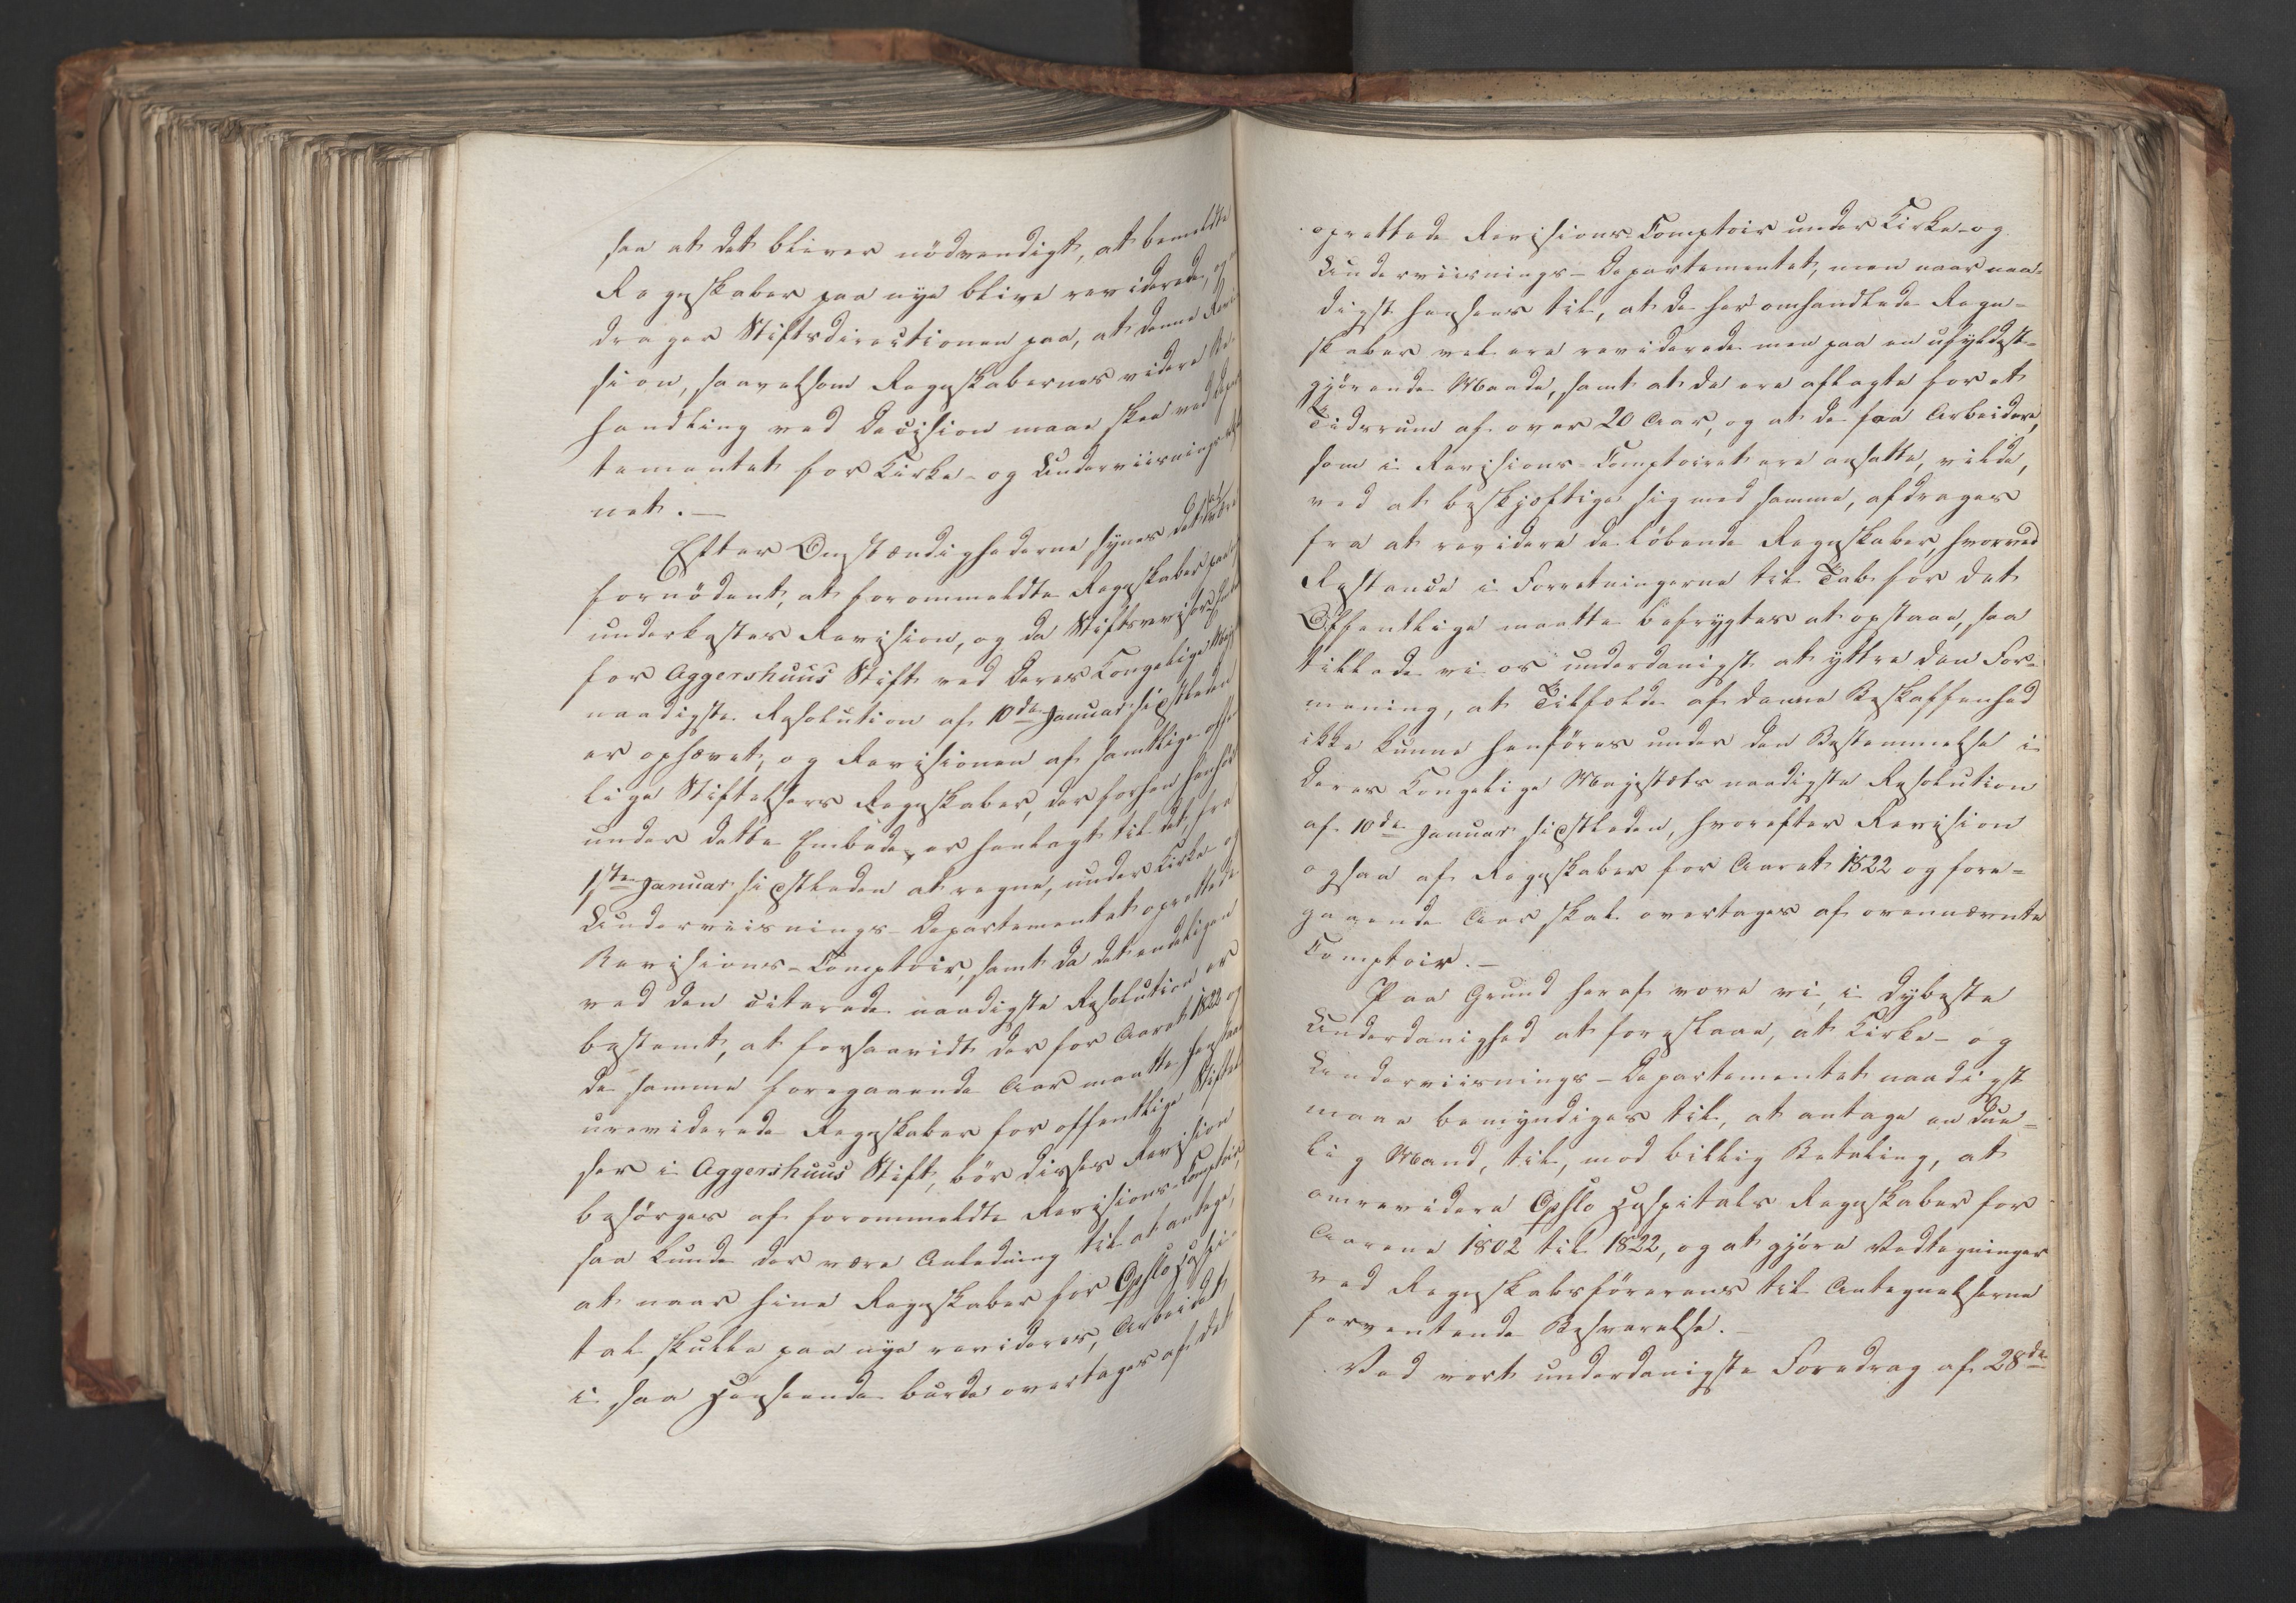 saa at det bliver nödvendigt, at bemeldte
Regnskaber paa nye blive reviderede, og
drager Stiftsdirectionen paa, at denne Revi-
sion, saavelsom Regnskabernes videre Be-
handling ved Decision maae skee ved Depar-
tementet for Kirke- og Underviisnings-
net. —
Efter Omstændighederne synes det at være
fornödent, at forommeldte Regnskaber paa
underkastes Revision, og da Stiftsrevisor
for Aggershuus Stift ved Deres Kongelige Maj
naadigste Resolution af 10de Januar sidstleden
er ophævet, og Revisionen af samtlige offent-
lige Stiftelsers Regnskaber, der forhen henhör
under dette Embede, er henlagt til det, fra
1ste Januar sidstleden at regne, under Kirke- og
Underviisnings-Departementet oprettede
Revisions-Comptoir, samt da det endeligen
ved den citerede naadigste Resolution er
bestemt, at forsaavidt der for Aaret 1822 og
de samme foregaaende Aar maatte henstaae
ureviderede Regnskaber for offentlige Stiftel-
ser i Aggershuus Stift, bör disses Revision
besörges af forommeldte Revisions-Comptoir,
saa kunde der være Anledning til at antage,
at naar hine Regnskaber for Opslo Hospi-
tal skulle paa nye revideres, Arbeidet
i saa Henseende burde overtages af det
oprettede Revisions-Comptoir under Kirke- og
Underviisnings-Departementet, men naar naa-
digst hensees til, at de her omhandlede Regn-
skaber vel ere reviderede men paa en ufyldest-
gjörende Maade, samt at de ere aflagte for et
Tidsrum af over 20 Aar, og at de faa Arbeidere,
som i Revisions-Comptoiret ere ansatte, vilde,
ved at beskjæftige sig med samme, afdrages
fra at revidere de löbende Regnskaber, hvorved
Restance i Forretningerne til Tab for det
Offentlige maatte befrygtes at opstaae, saa
tillade vi os underdanigst at yttre den For-
mening, at Tilfælde af denne Beskaffenhed
ikke kunne henföres under den Bestemmelse i
Deres Kongelige Majestæts naadigste Resolution
af 10de Januar sidstleden, hvorefter Revision
ogsaa af Regnskaber for Aaret 1822 og fore-
gaaende Aar skal overtages af ovennævnte
Comptoir. —
Paa Grund heraf vove vi, i dybeste
Underdanighed at foreslaae, at Kirke- og
Underviisnings-Departementet naadigst
maae bemyndiges til, at antage en due-
lig Mand, til, mod billig Betaling, at
omrevidere Opslo Hospitals Regnskaber for
Aarene 1802 til 1822, og at gjöre Vedtegninger
ved Regnskabsförerens til Antegnelserne
forventende Besvarelse. —
Ved vort underdanigste Foredrag af 28de